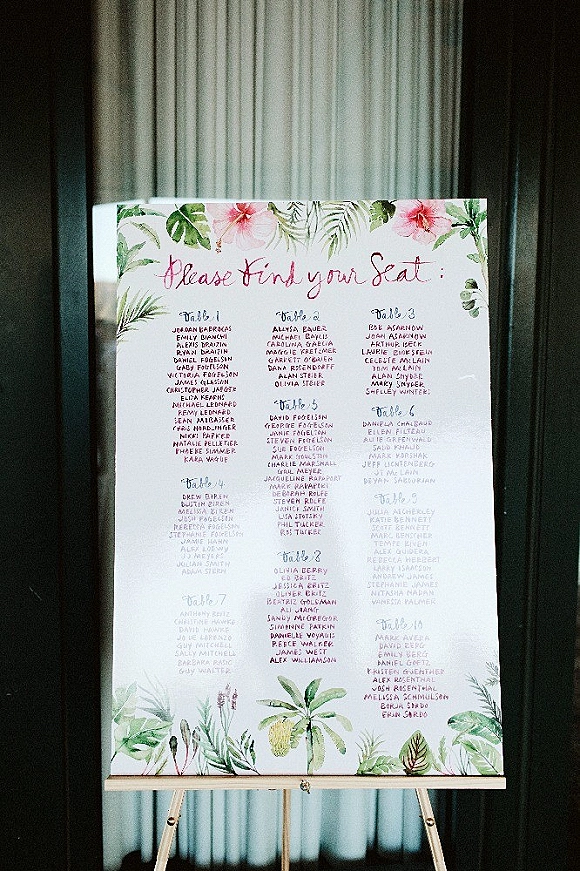 Please Find your Seat:
Table 1
JORDAN BADROCAS
EMILY BIANCHI
ALEXIS DRAIZIN
RYAN DRAIZIN
DANIEL FOGELSON
GABY FOGELSON
VICTORIA FOGELSON
JAMES GLASSON
CHRISTOPHER JAEGER
ELIZA KEARNS
MICHAEL LEONARD
REMY LEONARD
SEAN
CHRIS NORDLINGER
NIKKI PARKER
NATALIE PELLETIER
PHOEBE SIMMER
KARA VAGUE
Table 2
ALLYSA BAUER
MICHAEL BAYLIS
CAROLINA GARCIA
MAGGIE KRETZMER
GARRETT O'BRIEN
DANA ROSENDORFF
ALAN STEIER
OLIVIA STEIER
Table 3
BOB ASARNOW
JOAN ASARNOW
ARTHUR BECK
LAURIE BROKSTEIN
CELESTE McLAIN
TOM McLAIN
ALAN SNYDER
MARY SNYDER
SHELLEY WINTERS
Table 4
DREW BIREN
DUSTIN BIREN
MELISSA BIREN
JOSH FOGELSON
REBECCA FOGELSON
STEPHANIE FOGELSON
JAMIE HAHN
ALEX LOEWY
JJ MEYERS
JULIAN SMITH
ADAM STERN
Table 5
DAVID FOGELSON
GEORGE FOGELSON
JANIE FOGELSON
STEVEN FOGELSON
SUE FOGELSON
MARK GOULSTON
CHARLIE MARSHALL
GAIL MEYER
JACQUELINE RAPAPORT
MARK RAPAPORT
DEBORAH ROLFE
STEVEN ROLFE
JANICE SMITH
LISA STOTSKY
PHIL TUCKER
ROS TUCKER
Table 6
DANIELA CHALBAUD
EILEEN FILTEAU
ALIE GREENWALD
SAAD KHALID
MARK KORSHAK
JEFF LICHTENBERG
JT McLAIN
DEVAN SARDURIAN
Table 7
ANTHONY
CHRISTINE HAWKE
DAVID HAWKE
JOIE LORENZO
GUY MITCHELL
SALLY MITCHELL
BARBARA
GUY WALTER
Table 8
OLIVIA BERRY
ED BRITZ
JESSICA BRITZ
OLIVER BRITZ
BEATRIZ GOLEMAN
ALI JIANG
SANDY McGREGOR
SIMONNE PATKIN
DANIELLE VOYAGIS
REECE WALKER
JAMES WEST
ALEX WILLIAMSON
Table 9
JULIA AICHERLEY
KATIE BENNETT
SCOTT BENNETT
MARC BENSTHER
TOMER BIVEN
ALEX GUIDERA
REBECCA HERBERT
LARRY ISAACSON
ANDREW JAMES
STEPHANIE JAMES
NATASHA NADAN
VANESSA PALMER
Table 10
MARK AVERA
DAVID BERG
EMILY BERG
DANIEL GOETZ
KRISTEN GUENTHER
ALEX ROSENTHAL
JOSH ROSENTHAL
MELISSA SCHMULSON
BORJA SORDO
ERIN SORDO